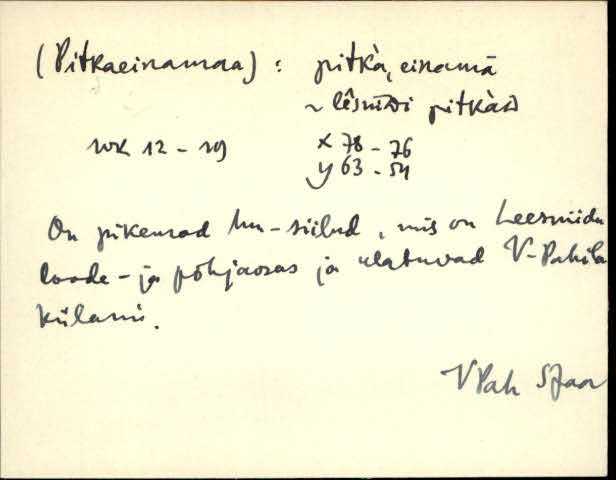 (Pitkaeinamaa) : pitkà, einamā
~ lêsnīdi pitkàD
wk 12 - 19 x 78 - 76
y 63 - 54
On pikemad hm-siilud, mis on Leesniidu
loode- ja põhjaosas ja ulatuvad V-Pahila
külani.
VPah SJaa